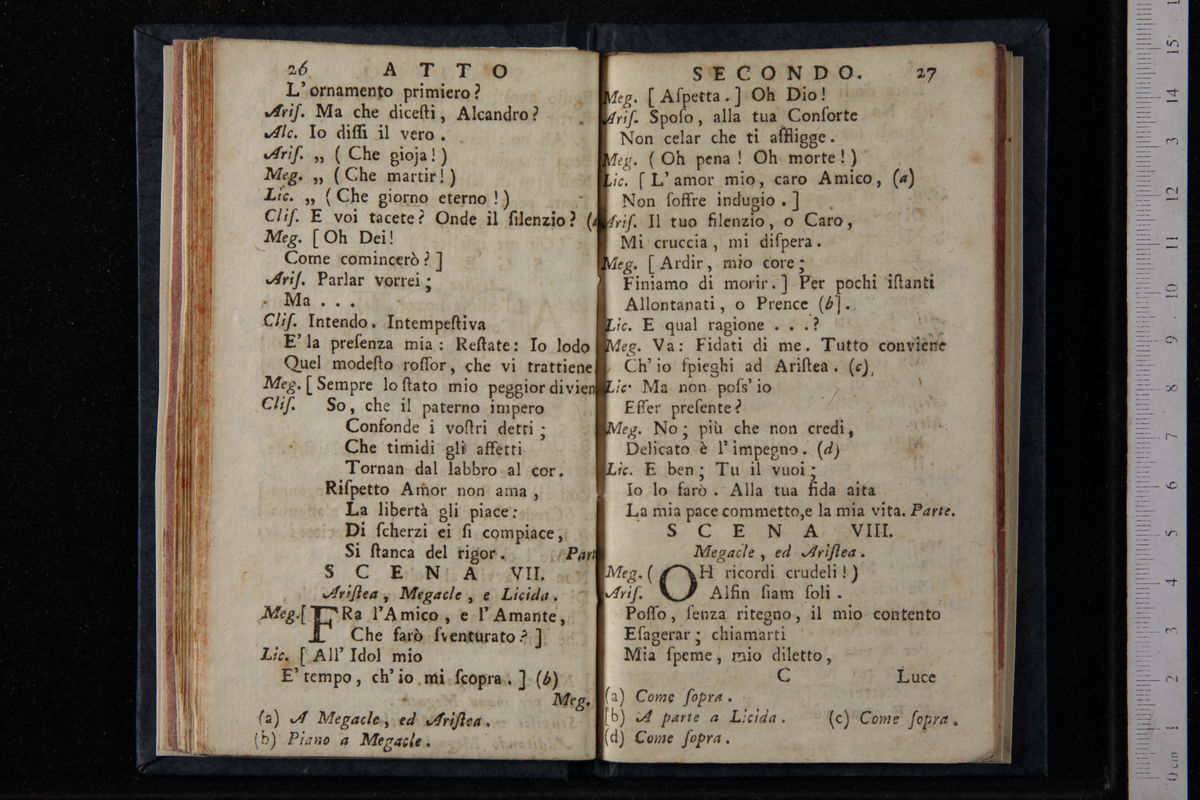 26 ATTO
L'ornamento primiero?
Ariſ. Ma che diceſti, Alcandro?
Alc. Io diſſi il vero.
Ariſ. „ (Che gioja!)
Meg. „ (Che martir!)
Lic. „ (Che giorno eterno!)
Cliſ. E voi tacete? Onde il ſilenzio? (a
Meg. [Oh Dei!
Come comincerò?]
Ariſ. Parlar vorrei;
Ma...
Cliſ. Intendo. Intempeſtiva
E' la preſenza mia: Reſtate: Io lodo
Quel modeſto roſſor, che vi trattiene.
Meg. [Sempre lo ſtato mio peggior divien
Cliſ. So, che il paterno impero
Confonde i voſtri detti;
Che timidi gli affetti
Tornan dal labbro al cor.
Riſpetto Amor non ama,
La libertà gli piace:
Di ſcherzi ei ſi compiace,
Si ſtanca del rigor. Part
SCENA VII.
Ariſtea, Megacle, e Licida.
Meg.[FRa l'Amico, e l'Amante,
Che farò ſventurato?]
Lic. [All' Idol mio
E' tempo, ch'io mi ſcopra.] (b)
Meg.
(a) A Megacle, ed Ariſtea.
(b) Piano a Megacle.
SECONDO. 27
Meg. [Aſpetta.] Oh Dio!
Ariſ. Spoſo, alla tua Conſorte
Non celar che ti affligge.
Meg. (Oh pena! Oh morte!)
Lic. [L'amor mio, caro Amico, (a)
Non ſoffre indugio.]
Ariſ. Il tuo ſilenzio, o Caro,
Mi cruccia, mi diſpera.
Meg. [Ardir, mio core;
Finiamo di morir.] Per pochi iſtanti
Allontanati, o Prence (b].
Lic. E qual ragione...?
Meg. Va: Fidati di me. Tutto conviene
Ch'io ſpieghi ad Ariſtea. (c),
Lic· Ma non poſs'io
Eſſer preſente?
Meg. No; più che non credi,
Delicato è l'impegno. (d)
Lic. E ben; Tu il vuoi;
Io lo farò. Alla tua fida aita
La mia pace commetto,e la mia vita. Parte.
SCENA VIII.
Megacle, ed Ariſtea.
Meg. (OH ricordi crudeli!)
Ariſ. Alfin ſiam ſoli.
Poſſo, ſenza ritegno, il mio contento
Eſagerar; chiamarti
Mia ſpeme, mio diletto,
C Luce
(a) Come ſopra.
(b) A parte a Licida. (c) Come ſopra.
(d) Come ſopra.
0 cm 1 2 3 4 5 6 7 8 9 10 11 12 13 14 15